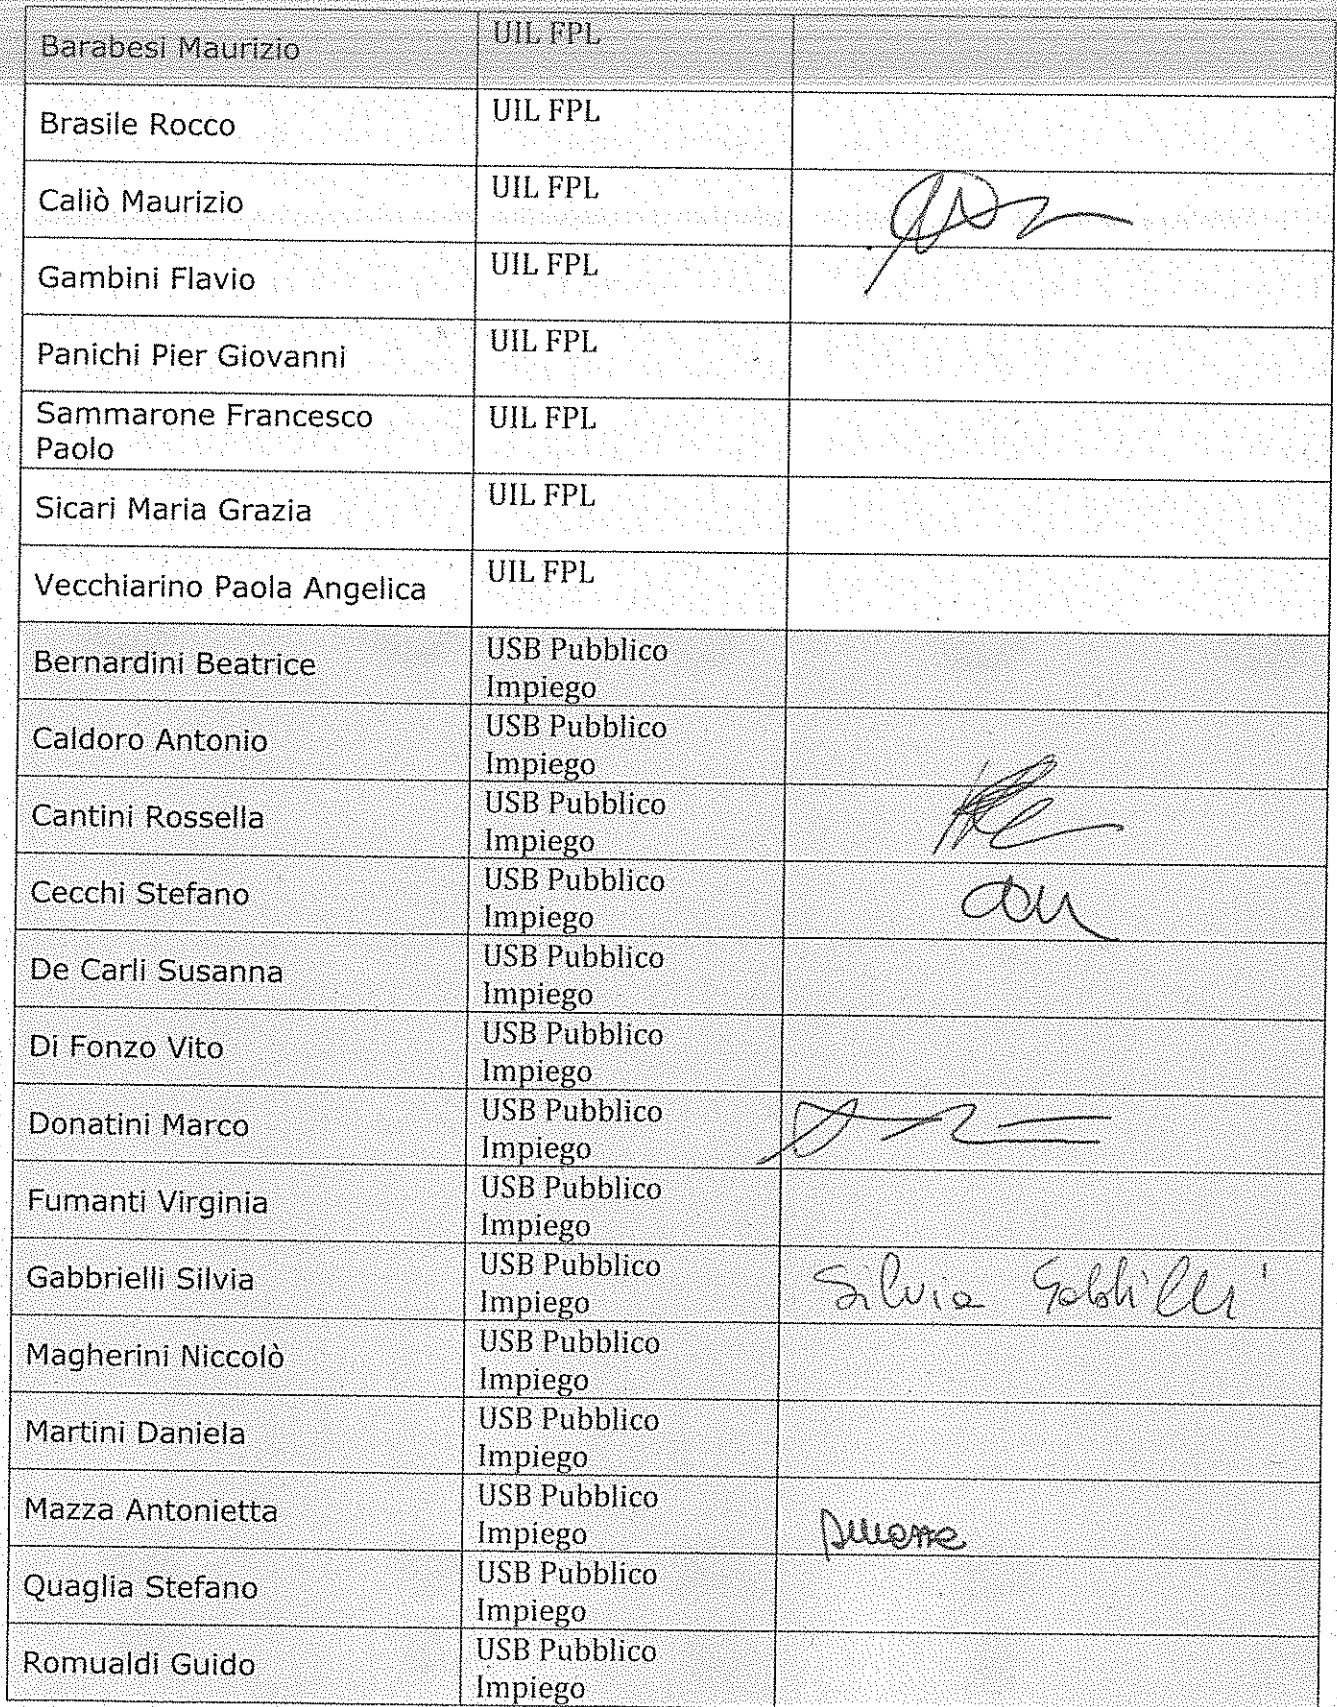 Barabesi Maurizio UIL FPL
Brasile Rocco UIL FPL
Caliò Maurizio UIL FPL
Gambini Flavio UIL FPL
Panichi Pier Giovanni UIL FPL
Sammarone Francesco UIL FPL
Paolo
Sicari Maria Grazia UIL FPL
Vecchiarino Paola Angelica UIL FPL
Bernardini Beatrice USB Pubblico
Impiego
Caldoro Antonio USB Pubblico
Impiego
Cantini Rossella USB Pubblico
Impiego
Cecchi Stefano USB Pubblico
Impiego
De Carli Susanna USB Pubblico
Impiego
Di Fonzo Vito USB Pubblico
Impiego
Donatini Marco USB Pubblico
Impiego
Fumanti Virginia USB Pubblico
Impiego
Gabbrielli Silvia USB Pubblico
Impiego Silvia Gabbrielli
Magherini Niccolò USB Pubblico
Impiego
Martini Daniela USB Pubblico
Impiego
Mazza Antonietta USB Pubblico
Impiego
Quaglia Stefano USB Pubblico
Impiego
Romualdi Guido USB Pubblico
Impiego